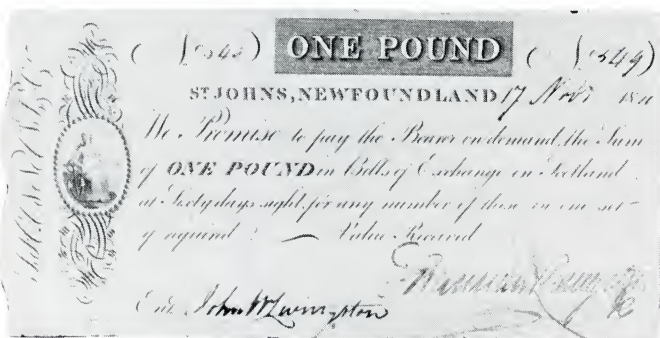 ONE POUND
ST JOHNS, NEWFOUNDLAND 17 Novr 18
We Promise to pay the Bearer on demand, the Sum
of ONE POUND in Bills of Exchange on Scotland
at Sixty days sight, for any number of these in one set
if required. Value Received
Entd. John W Livingston